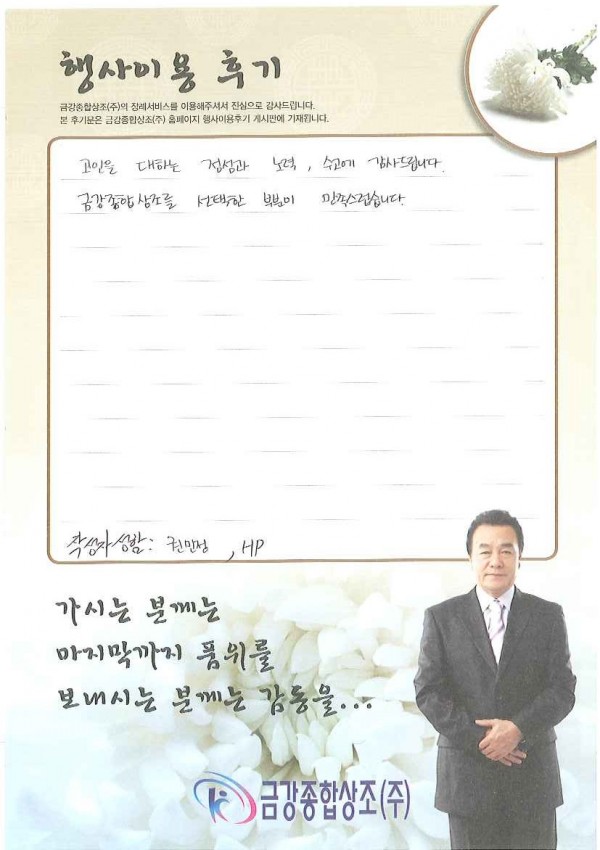 행사이용 후기
금강종합상조(주)의 장례서비스를 이용해주셔서 진심으로 감사드립니다.
본 후기문은 금강종합상조(주) 홈페이지 행사이용후기 게시판에 기재됩니다.
고인을 대하는 정성과 노력, 수고에 감사드립니다.
금강종합상조를 선택한 부분이 만족스럽습니다.
작성자성함: 권민정, HP
가시는 분께는
마지막까지 품위를
보내시는 분께는 감동을...
금강종합상조(주)